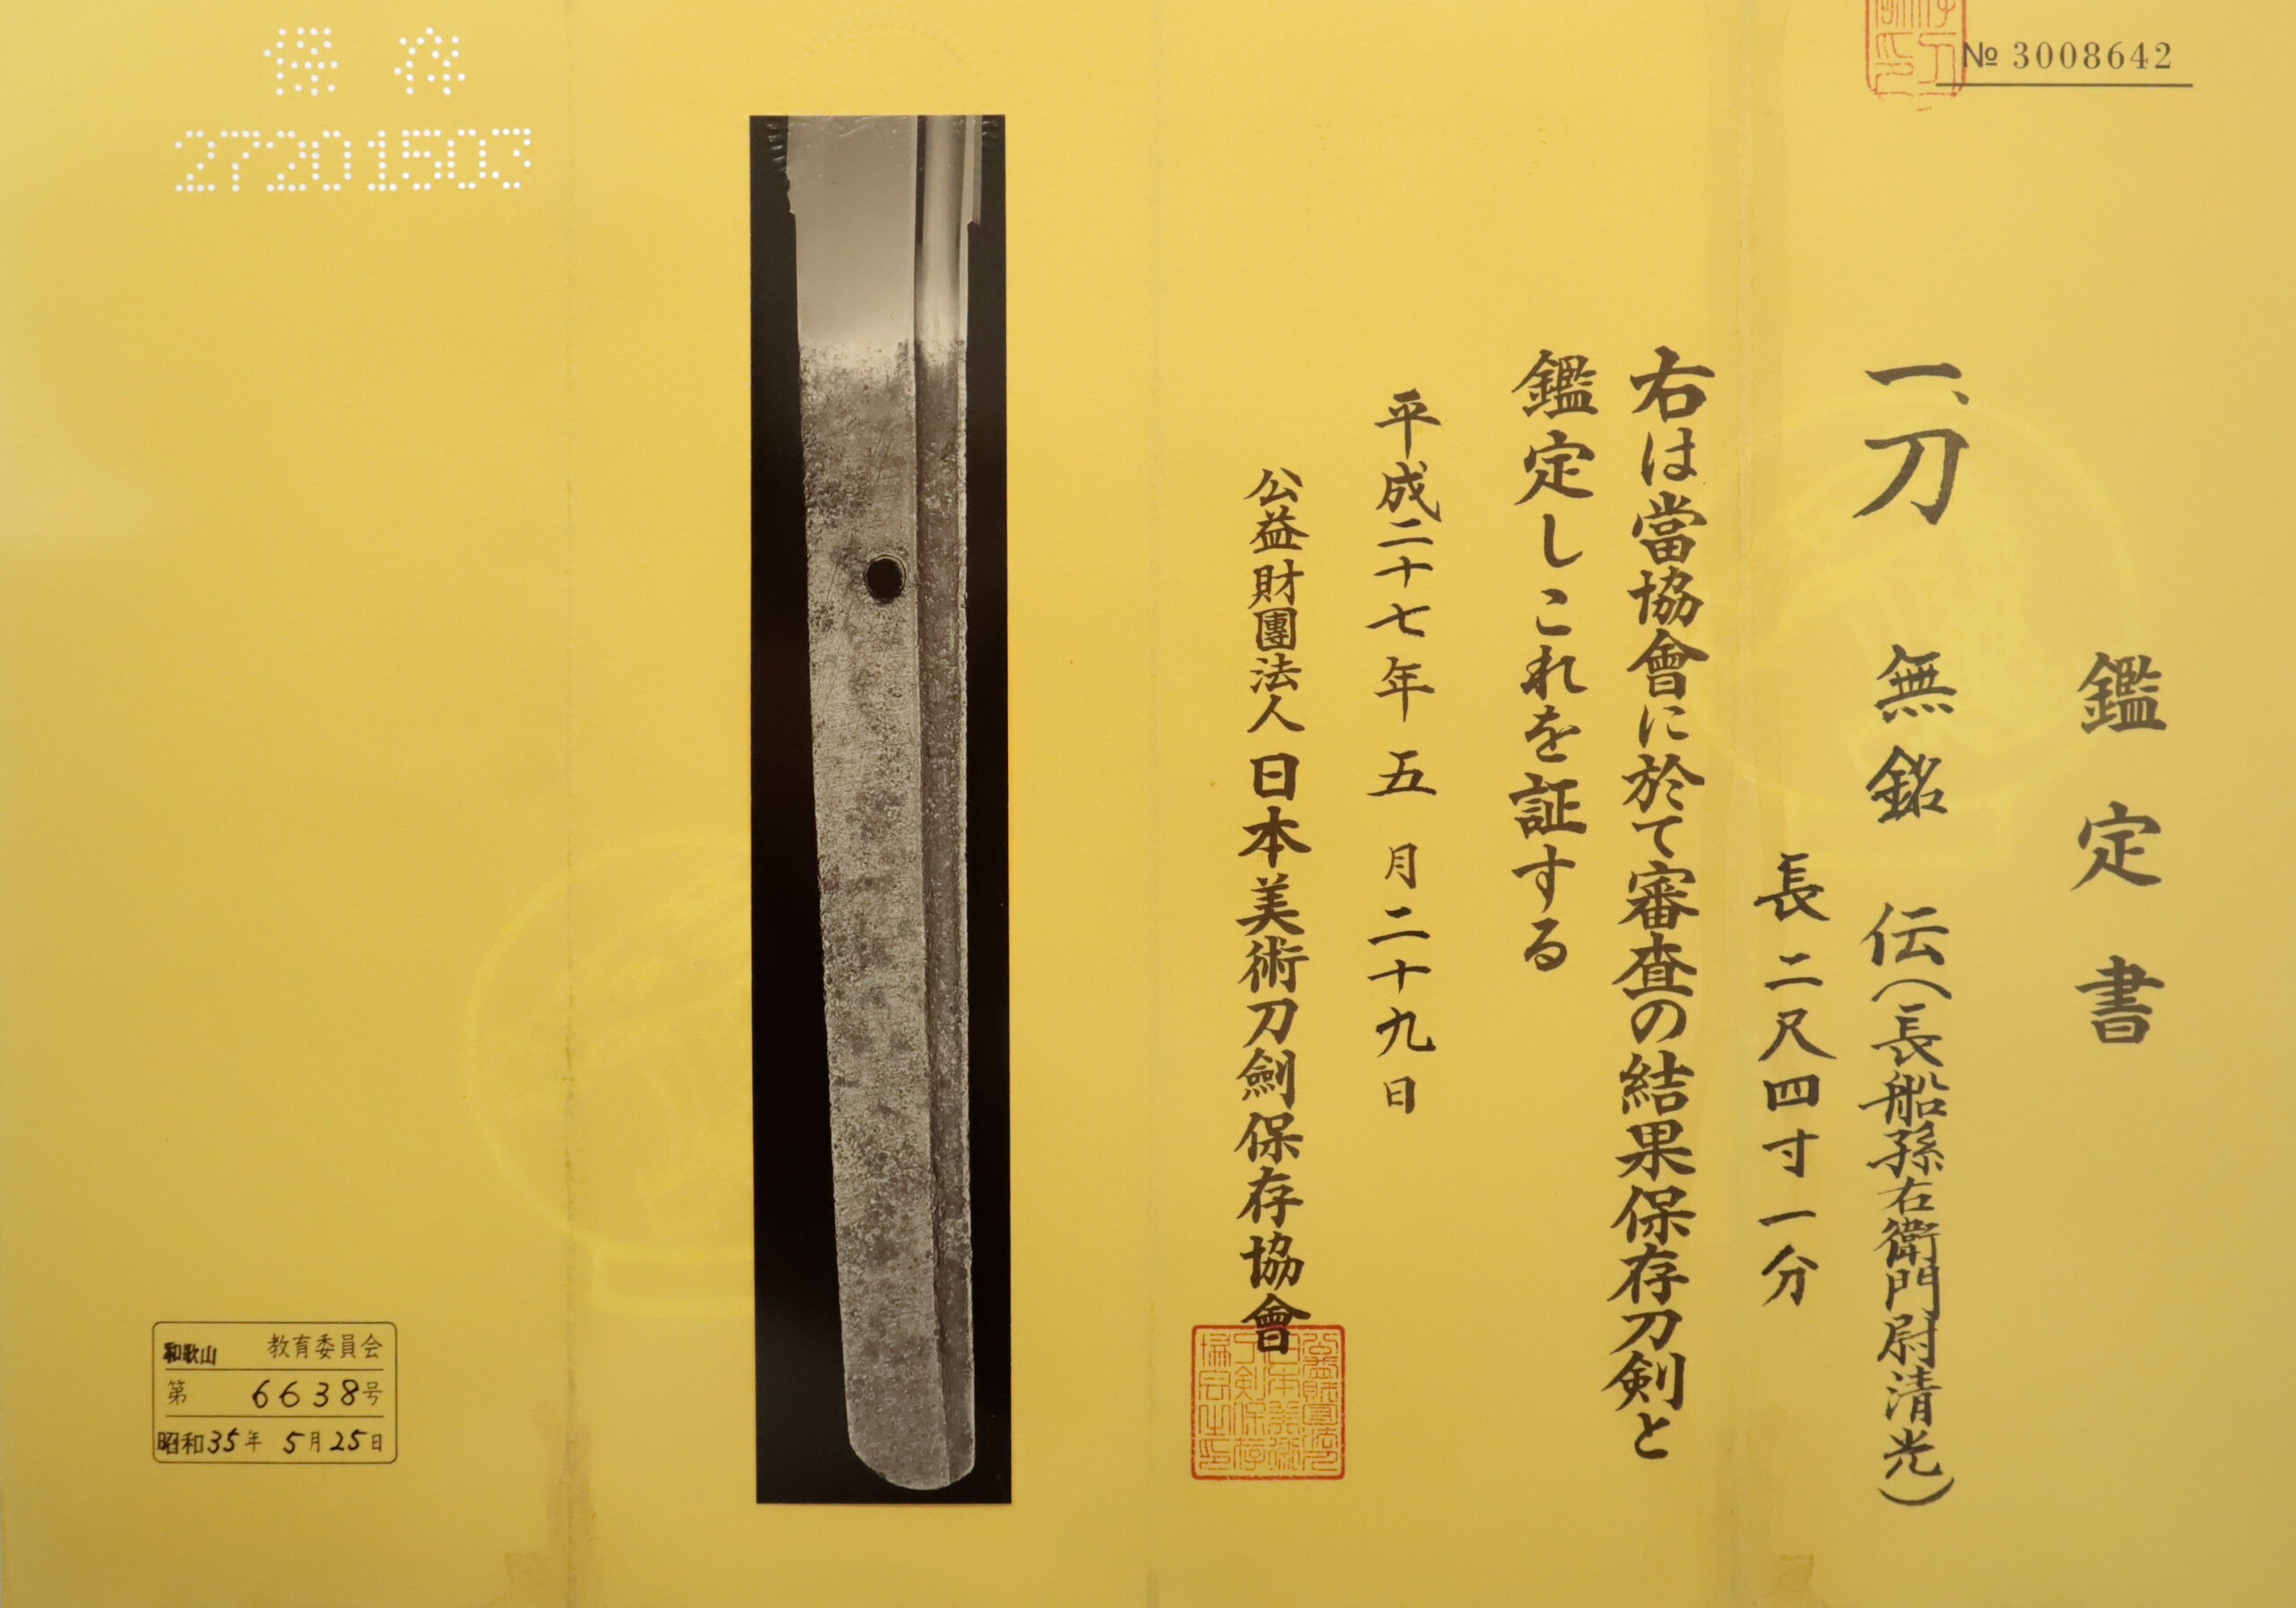 № 3008642
鑑定書
一、刀 無銘 伝(長船孫右衛門尉清光)
長二尺四寸一分
右は當協會に於て審査の結果保存刀剣と
鑑定しこれを証する
平成二十七年五月二十九日
公益財團法人日本美術刀劍保存協會
保存
27201503
和歌山 教育委員会
第 6638号
昭和35年 5月25日